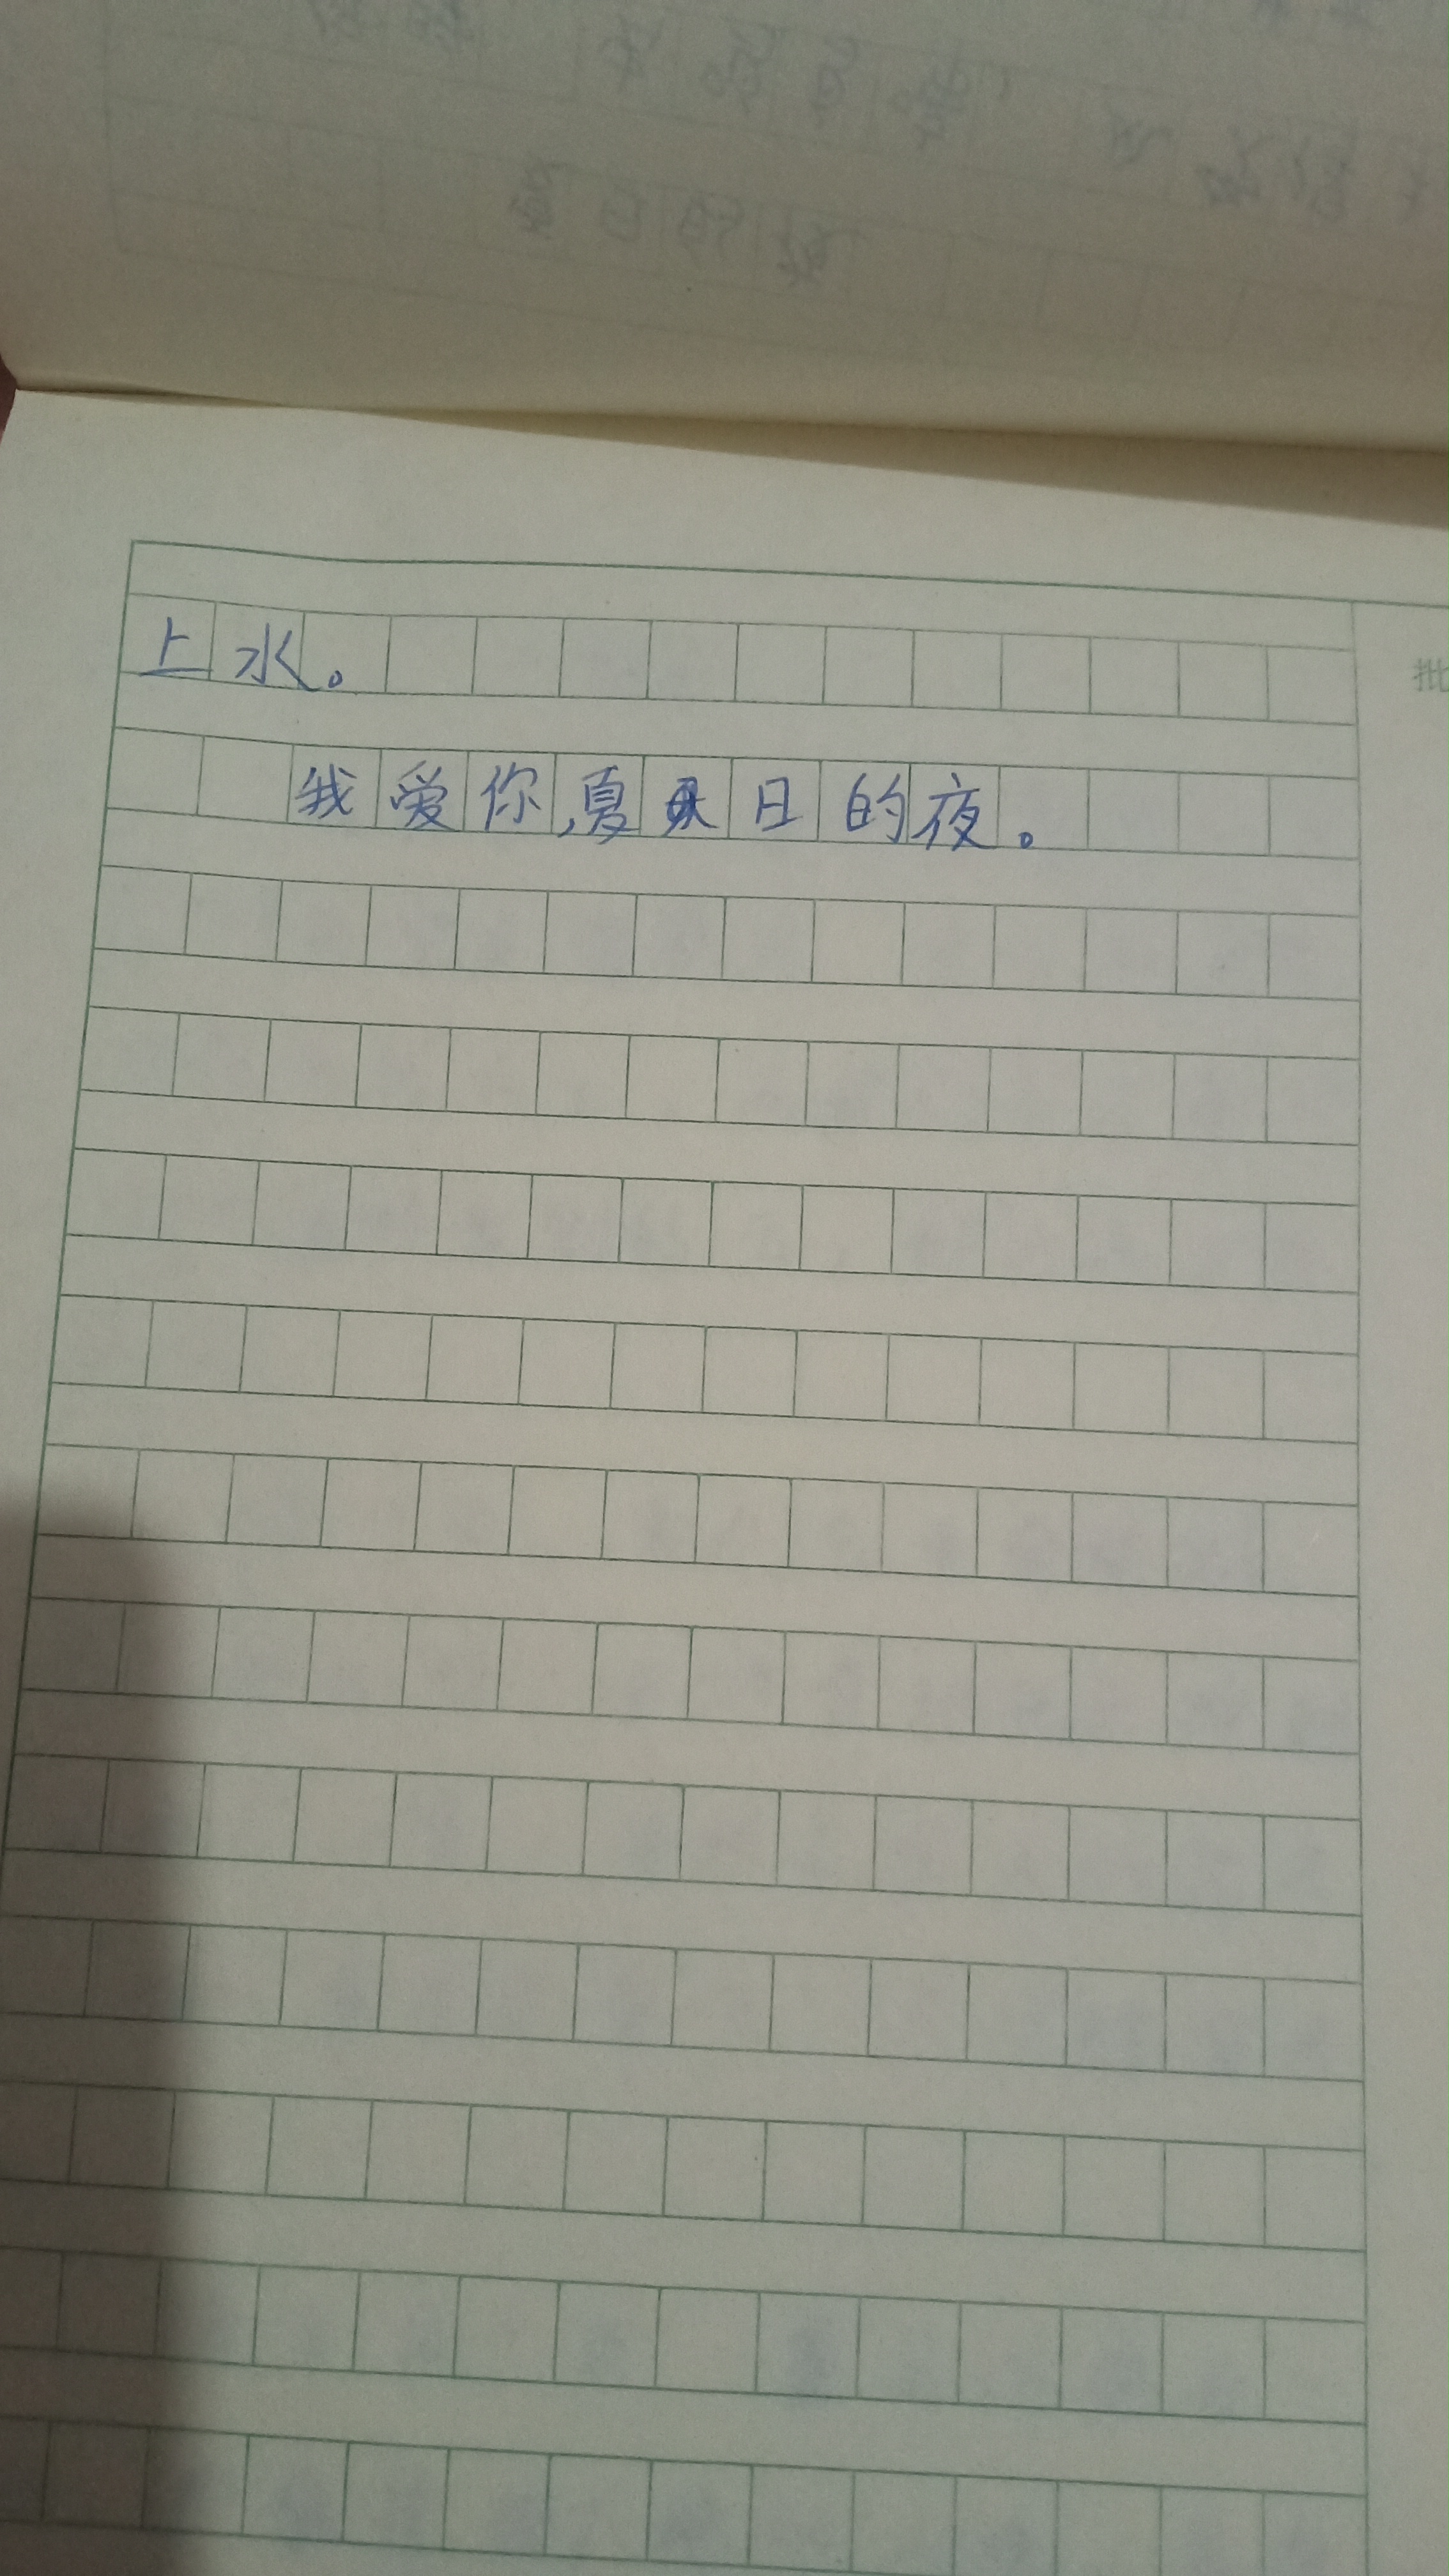 上水。
我爱你,夏日的夜。
批